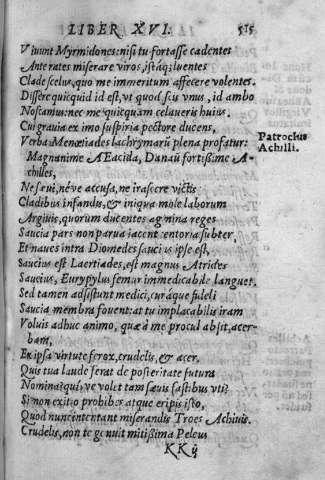 LIBER XVI. 515
Viuunt Myrmidones: nisi tu fortasse cadentes
Ante rates miserare viros, istáq; luentes
Clade scelus, quo me immeritum affecere volentes.
Dissere quicquid id est, vt quod scit vnus, id ambo
Noscamus: nec me quicquam celaueris huius.
Cui grauia ex imo suspiria pectore ducens,
Verba Menœtiades lachrymarū plena profatur:
Patroclus
Achilli.
Magnanime AEacida, Danaû fortissime A-
chilles,
Ne saeui, néve accusa, ne irascere victis
Cladibus infandis, & iniqua mole laborum
Argiuis, quorum ducentes agmina reges
Saucia pars non parua iacent tentoria subter,
Et naues intra Diomedes saucius ipse est,
Saucius est Laertiades, est magnus Atrides
Saucius, Eurypylus femur immedicabile languet.
Sed tamen adsistunt medici, curáque fideli
Saucia membra fouent: at tu implacabilis iram
Voluis adhuc animo, quæ à me procul absit, acer-
bam,
Ex ipsa virtute ferox, crudelis, & acer.
Quis tua laude ferat de posteritate futura
Nomina? qui, ve volet tam sæuis fastibus vti?
Si non exitio prohibes atque eripis isto,
Quod nunc intentant miserandis Troes Achiuis.
Crudelis, non te genuit mitissima Peleus
KK ij